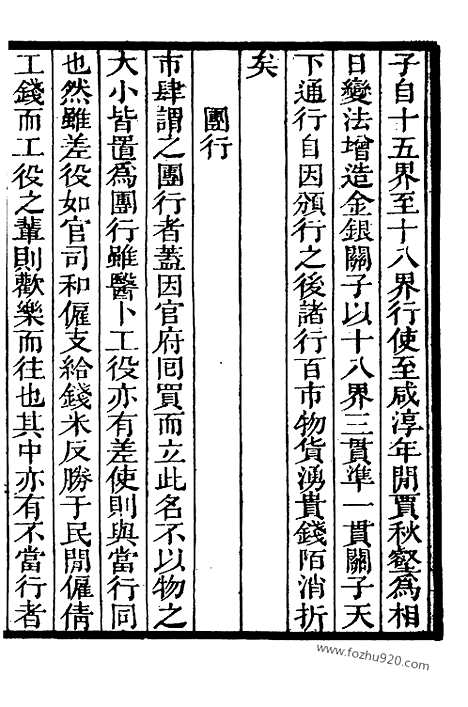 子自十五界至十八界行使至咸淳年閒賈秋壑為相
日變法增造金銀關子以十八界三貫準一貫關子天
下通行自因頒行之後諸行百市物貨湧貴錢陌消折
矣
團行
市肆謂之團行者蓋因官府囘買而立此名不以物之
大小皆置為團行雖醫卜工役亦有差使則與當行同
也然雖差役如官司和僱支給錢米反勝于民閒僱倩
工錢而工役之輩則歡樂而往也其中亦有不當行者
www.fozhu920.com